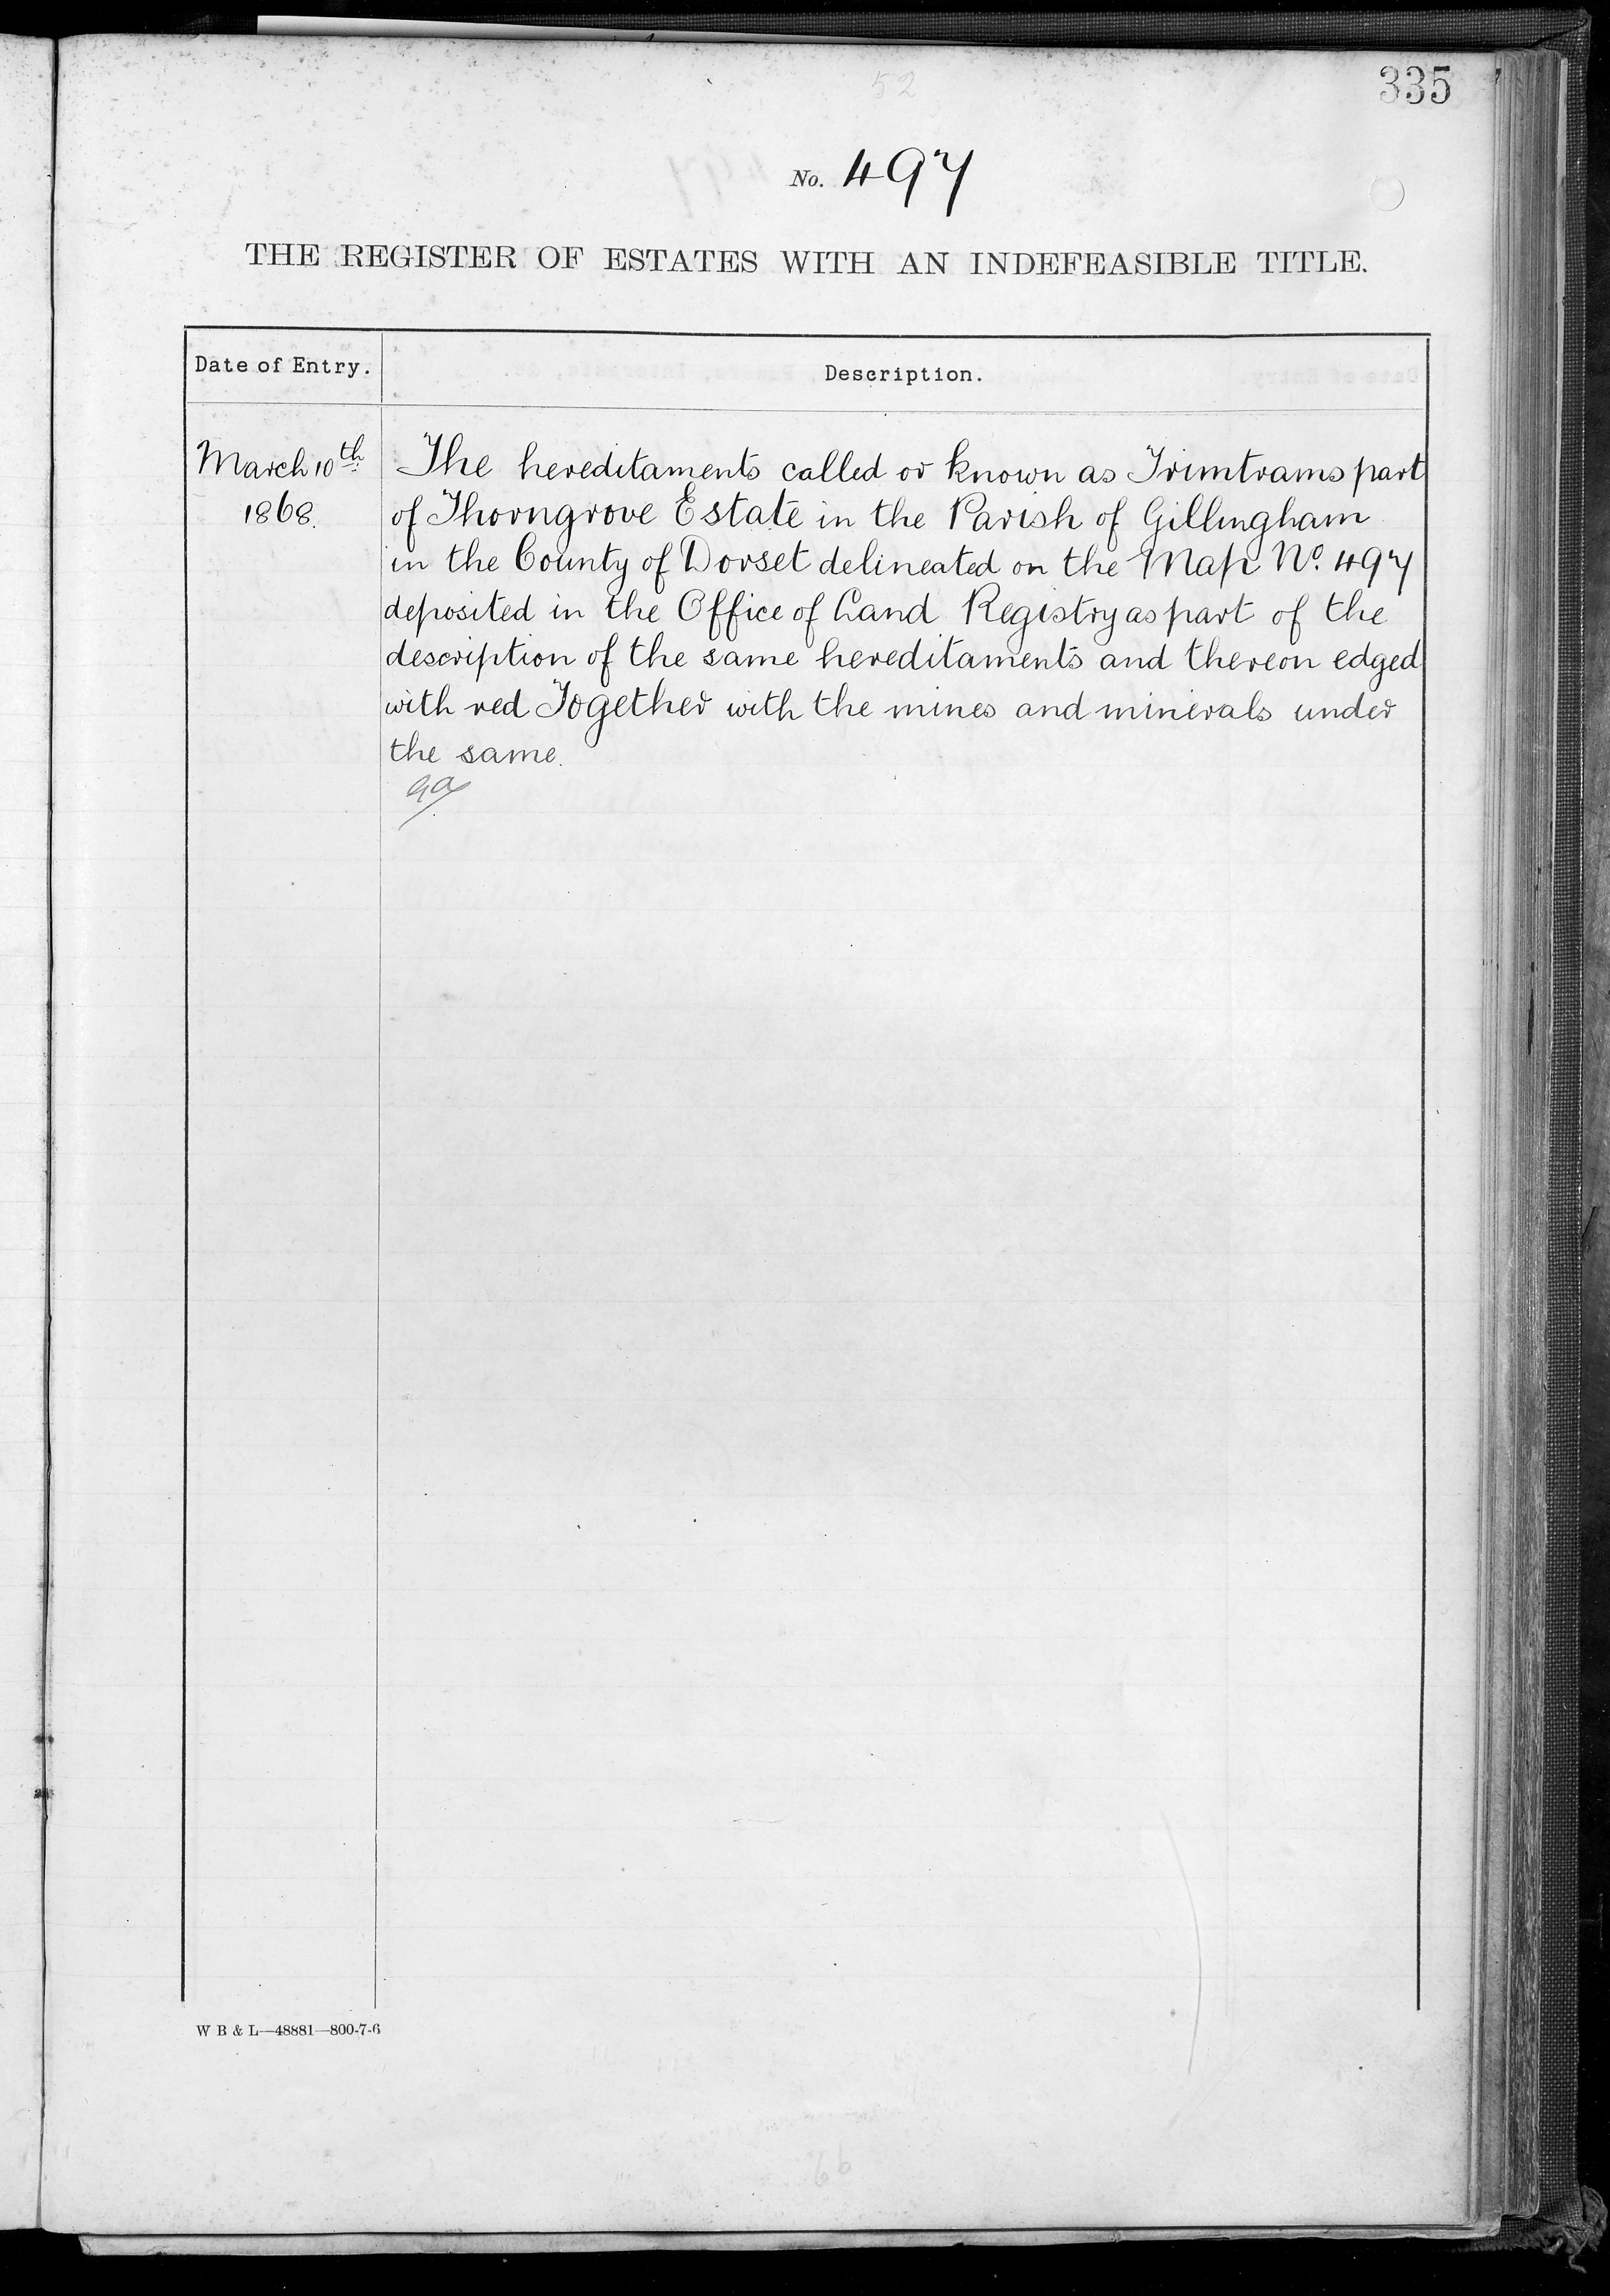 52
335
No. 497
THE REGISTER OF ESTATES WITH AN INDEFEASIBLE TITLE.
Date of Entry.
Description.
March 10th
1868.
The hereditaments called or known as Trimtrams part
of Thorngrove Estate in the Parish of Gillingham
in the County of Dorset delineated on the Map No. 497
deposited in the Office of Land Registry as part of the
description of the same hereditaments and thereon edged
with red Together with the mines and minerals under
the same.
W B & L—48881—800-7-6